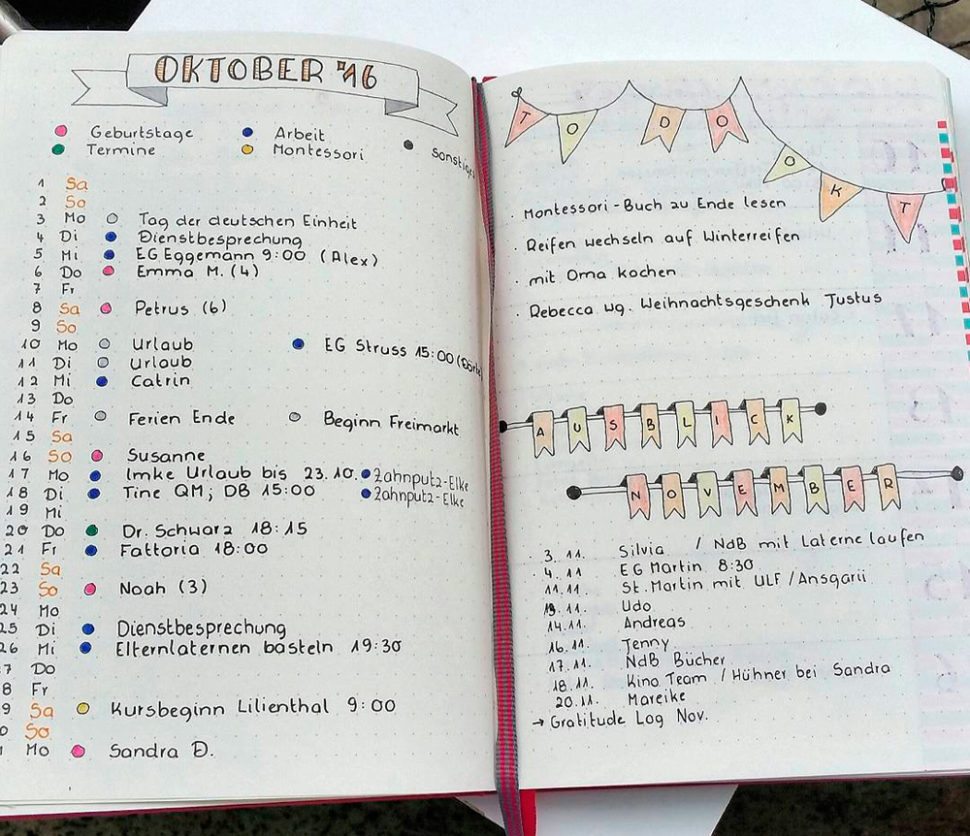 OKTOBER '16
Geburtstage Arbeit
Termine Montessori
1 Sa
2 So
3 Mo Tag der deutschen Einheit
4 Di Dienstbesprechung
5 Mi EG Eggemann 9:00 (Alex)
6 Do Emma M. (4)
7 Fr
8 Sa Petrus (6)
9 So
10 Mo Urlaub EG Struss 15:00
11 Di Urlaub
12 Mi Catrin
13 Do
14 Fr Ferien Ende Beginn Freimarkt
15 Sa
16 So Susanne
17 Mo Imke Urlaub bis 23.10. Zahnputz-Elke
18 Di Tine QM; DB 15:00 Zahnputz-Elke
19 Mi
20 Do Dr. Schwarz 18:15
21 Fr Fattoria 18:00
22 Sa
23 So Noah (3)
24 Mo
25 Di Dienstbesprechung
26 Mi Elternlaternen basteln 19:30
7 Do
8 Fr
9 Sa Kursbeginn Lilienthal 9:00
0 So
1 Mo Sandra D.
TO DO OKT
· Montessori-Buch zu Ende lesen
· Reifen wechseln auf Winterreifen
· mit Oma kochen
· Rebecca wg. Weihnachtsgeschenk Justus
AUSBLICK
NOVEMBER
3.11. Silvia / NdB mit Laterne laufen
4.11 EG Martin 8:30
11.11. St. Martin mit ULF / Ansgarii
13.11. Udo
14.11. Andreas
16.11. Jenny
17.11. NdB Bücher
18.11. Kino Team / Hühner bei Sandra
20.11. Mareike
→ Gratitude Log Nov.